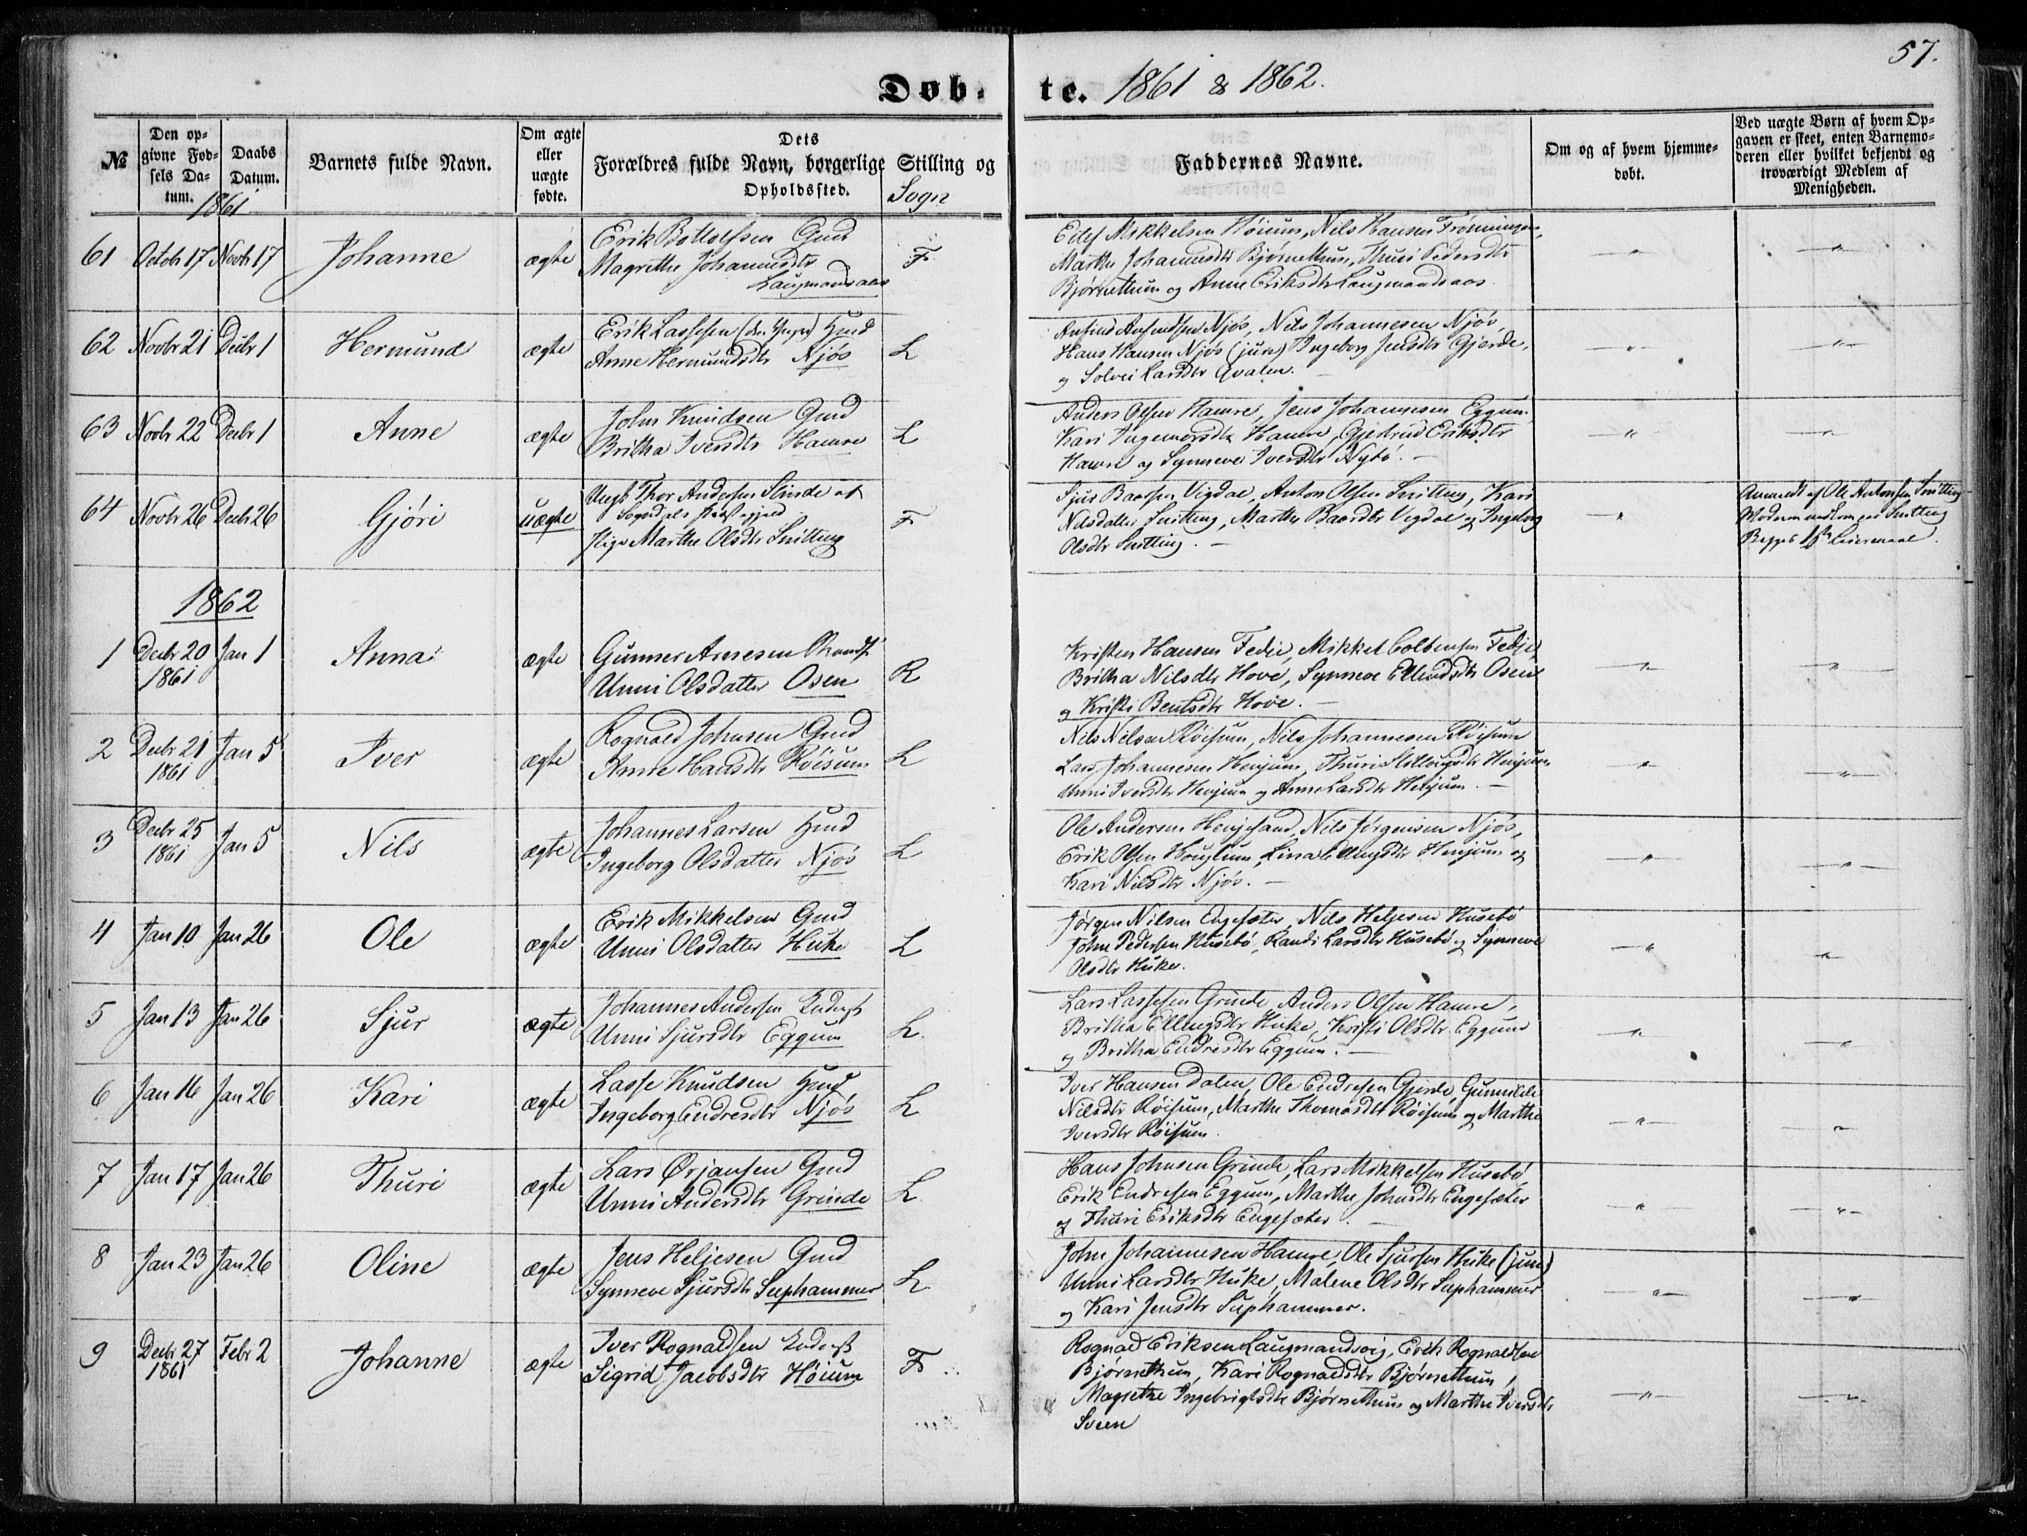 57.
Døb- te. 1861 & 1862.
№
Den opgivne Fødsels Datum.
Daabs Datum.
Barnets fulde Navn.
Om ægte eller uægte fødte.
Dets Forældres fulde Navn, borgerlige Stilling og Opholdssted.
Sogn
Faddernes Navne.
Om og af hvem hjemmedøbt.
Ved uægte Børn af hvem Opgaven er skeet, enten Barnemoderen eller hvilket bekjendt og troværdigt Medlem af Menigheden.
1861
61 Octob 17 Novb 17 Johanne ægte
Erik Bottolfsen Gmd
Magrethe Johannesdtr
Laugmandsaas
F
Eilef Mikkelsen Høium, Nils Hansen Frønningen,
Marthe Johannesdtr Bjørnethun, Thuri Pedersdtr
Bjørnethun og Anne Eriksdtr Laugmandsaas.
62 Novbr 21 Decbr 1 Hermund ægte
Erik Lassesen (den Yngre) Hmd
Anne Hermundsdtr Njøs
L
Ansind Ansindsen Njøs, Nils Johannesen Njøs,
Hans Hansen Njøs (jun) Ingeborg Jensdtr Gjerde,
og Solvei Larsdtr Qvalen.
63 Novbr 22 Decbr 1 Anne ægte
John Knudsen Gmd
Britha Iversdtr Hamre
L
Anders Olsen Hamre, Jens Johannesen Eggum,
Kari Ingemorsdtr Hamre, Gjertrud Eriksdtr
Hamre og Synneve Iversdtr Nybø.
64 Novbr 26 Decbr 26 Gjøri uægte
Ungk Thor Andersen Slinde af
Sogndals Præstegjeld
Pige Marthe Olsdtr Snitting
F
Sjur Baarsen Vigdal, Anton Olsen Snitting, Kari
Nilsdatter Snitting, Marthe Baardtr Vigdal og Ingeborg
Olsdtr Snitting.
Anmeldt af Ole Antonsen Snitting
Begges 1ste Leiermaal.
1862
1 Decbr 20 1861 Jan 1 Anna ægte
Gunner Arnesen
Unni Olsdatter Osen
R
Kristen Hansen Fedje, Mikkel Colbensen Fedje
Britha Nilsdtr Hove, Synneve Ellendsdtr Osen
og Kristi Bentsdtr Hove.
2 Decbr 21 1861 Jan 5 Iver ægte
Rognald Johnsen Gmd
Anne Hansdtr Røisum
L
Nils Nilsen Røisum, Nils Johannesen Røisum
Lars Johannesen Henjum, Thuri Hellingsdtr Henjum
Unni Iversdtr Henjum og Anne Larsdtr Henjum.
3 Decbr 25 1861 Jan 5 Nils ægte
Johannes Larsen Hmd
Ingeborg Olsdatter Njøs
L
Ole Andersen Henjesand, Nils Jørgensen Njøs,
Erik Olsen Houglum, Lina Ellingsdtr Henjum og
Kari Nilsdtr Njøs.
4 Jan 10 Jan 26 Ole ægte
Erik Mikkelsen Gmd
Unni Olsdatter Huke
L
Jørgen Nilsen Engesæter, Nils Heljesen Husebø
John Pedersen Husebø, Randi Larsdtr Husebø og Synneve
Olsdtr Huke.
5 Jan 13 Jan 26 Sjur ægte
Johannes Andersen Inderst
Unni Sjursdtr Eggum
L
Lars Lassesen Grinde, Anders Olsen Hamre,
Britha Ellingsdtr Huke, Kristi Olsdtr Eggum
og Britha Endresdtr Eggum.
6 Jan 16 Jan 26 Kari ægte
Lasse Knudsen Hmd
Ingeborg Endresdtr Njøs
L
Iver Hansen Dalen, Ole Endresen Gjerde, Gunnilde
Nilsdtr Røisum, Marthe Thomasdtr Røisum og Marthe
Iversdtr Røisum.
7 Jan 17 Jan 26 Thuri ægte
Lars Ørjansen Gmd
Unni Andersdtr Grinde
L
Hans Johnsen Grinde, Lars Mikkelsen Husebø
Erik Endresen Eggum, Marthe Johnsdtr Engesæter
og Thuri Eriksdtr Engesæter.
8 Jan 23 Jan 26 Oline ægte
Jens Heljesen Gmd
Synneve Sjursdtr Suphammer
L
John Johannesen Hamre, Ole Sjursen Huke (jun)
Unni Larsdtr Huke, Malene Olsdtr Suphammer
og Kari Jensdtr Suphammer.
9 Decbr 27 1861 Febr 2 Johanne ægte
Iver Rognaldsen Inderst
Sigrid Jacobsdtr Høium
F
Rognald Eriksen Laugmandsvig, Erik Rognaldsen
Bjørnethun, Kari Rognaldsdtr Bjørnethun,
Magrethe Ingebrigtsdtr Bjørnethun og Marthe Iversdtr
Sveen